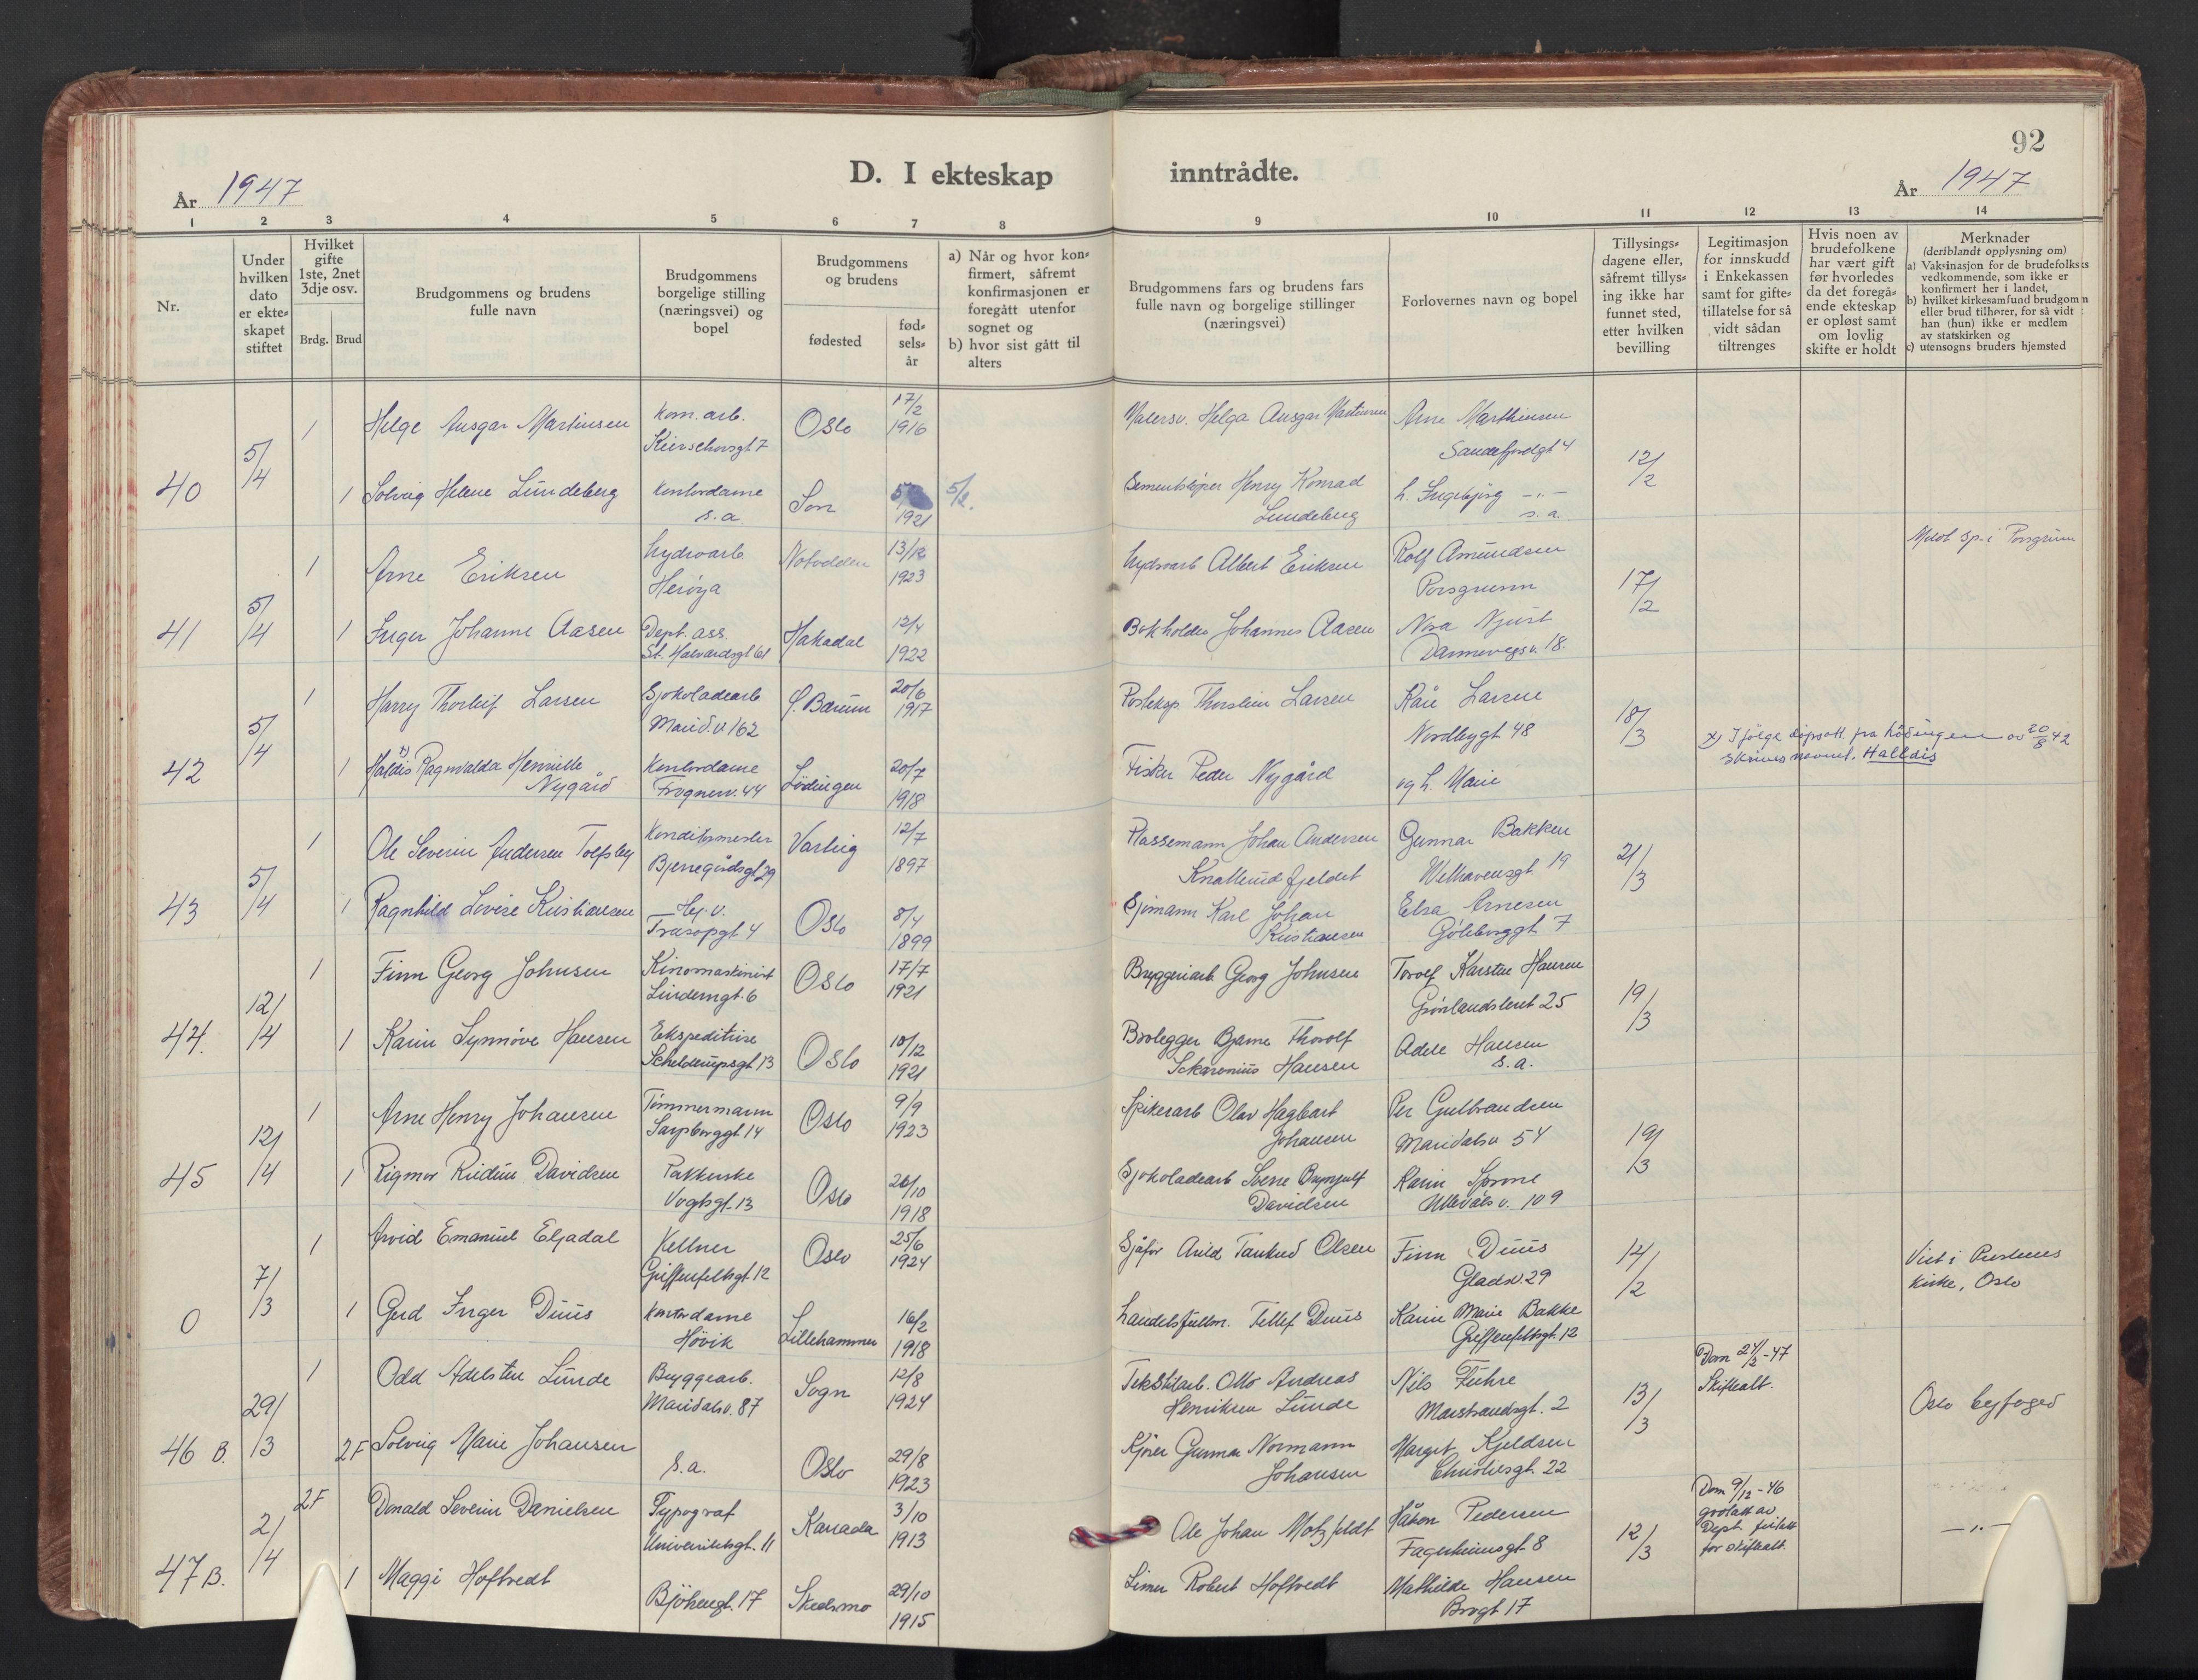 92
D. I ekteskap inntrådte.
År 1947
År 1947
1 2 3 4 5 6 7 8 9 10 11 12 13 14
Nr.
Under hvilken dato er ekte= skapet stiftet
Hvilket gifte 1ste, 2net 3dje osv.
Brdg. Brud
Brudgommens og brudens fulle navn
Brudgommens borgelige stilling (næringsvei) og bopel
Brudgommens og brudens
fødested
fød= sels= år
a) Når og hvor kon= firmert, såfremt konfirmasjonen er foregått utenfor sognet og
b) hvor sist gått til alters
Brudgommens fars og brudens fars fulle navn og borgelige stillinger (næringsvei)
Forlovernes navn og bopel
Tillysings= dagene eller, såfremt tillys= ing ikke har funnet sted, etter hvilken bevilling
Legitimasjon for innskudd i Enkekassen samt for gifte= tillatelse for så vidt sådan tiltrenges
Hvis noen av brudefolkene har vært gift før hvorledes da det foregå= ende ekteskap er opløst samt om lovlig skifte er holdt
Merknader
(deriblandt opplysning om)
a) Vaksinasjon for de brudefolks vedkommende, som ikke er konfirmert her i landet,
b) hvilket kirkesamfund brudgom eller brud tilhører, for så vidt han (hun) ikke er medlem av statskirken og
c) utensogns bruders hjemsted
40 5/4
1 Helge Ansgar Martinsen Kom. arb. Oslo 17/2 1916 Helge Ansgar Martinsen Arne Marthinsen Sandefjordgt 4 12/2
1 Solveig Helene Lundeberg Kontordame s.a. Son 1921 Henry Konrad Lundeberg h. Ingebjørg -"- s.a.
41 5/4
1 Arne Eriksen hydroarb Herøya Notodden 13/12 1923 hydroarb Albert Eriksen Rolf Amundsen Porsgrunn 17/2
1 Inger Johanne Aasen Dept. ass. St. Halvardsgt 61 Hakadal 12/4 1922 Bokholder Johannes Aasen Nora Danmarksgt. 18.
42 5/4
1 Harry Thorleif Larsen Sjokoladearb Marid.v 162 Ø. Bærum 20/6 1917 Posteksp Thorstein Larsen Kåre Larsen Nordbygt 48 18/3
1 Haldis x) Ragnvalda Henrille Nygård Kontordame Frognerv. 44 Lødingen 20/7 1918 Fisker Peder Nygård og h. Marie
x) Ifølge dåpsatt. fra Lødingen av 20/8 42 skrives navnet. Halldis
43 5/4
1 Ole Severin Andersen Tolfsby Konditormester Bjerregårdsgt 29 Varteig 12/7 1897 Plassemann Johan Andersen Knatterudfjeldet Gunnar Bakken Welhavensgt 19 21/3
1 Ragnhild Lovise Kristiansen Hj. v. Trusopgt. 4 Oslo 8/4 1899 Sjømann Karl Johan Kristiansen Elsa Arnesen Gøteborggt. 7
44. 12/4
1 Finn Georg Johnsen Kinomaskinist Lindemgt. 6 Oslo 17/7 1921 Bryggeriarb Georg Johnsen Torolf Karsten Hansen Grønlandsleret 25 19/3
1 Karin Synnøve Hansen Ekspeditrise Schelderupsgt 13 Oslo 10/12 1921 Brolegger Bjarne Thorolf Hansen Adele Hansen s.a.
45 12/4
1 Arne Henry Johansen Tømmermann Sarpsborggt 14 Oslo 9/9 1923 Spikerarb Olav Hagbart Johansen Per Gulbrandsen Maridalsv 54 19/3
1 Rigmor Reidun Davidsen Pakkerske Vogtsgt. 13 Oslo 26/10 1918 Sjokoladearb Sverre Brynjulf Davidsen Karin Ullevålsv. 109
0 7/3
1 Arvid Emanuel Eljadal Kellner Griffenfeldtsgt 12 Oslo 25/6 1924 Sjåfør Arild Tankred Olsen Finn Duus Gladv. 29 14/2 Viet i Kirke, Oslo
1 Gerd Inger Duus Kontordame Høvik Lillehammer 16/2 1918 handelsfullm. Tellef Duus Karin Marie Bakke Griffenfeldtsgt. 12
46 B. 29/3
1 Odd Adelsten Lunde Byggearb. Maridalsv. 87 Sogn 12/8 1924 Tekstilarb. Otto Andreas Henriksen Lunde Nils Marstrandsgt. 2 13/3 Skifteatt. Oslo byfoged
2F Solveig Marie Johansen s.a. Oslo 29/8 1923 Kjører Gunnar Normann Johansen Margit Kjeldsen Christiesgt. 22
47 B. 2/4
2F Donald Severin Danielsen Typograf Universitetsgt. 11 Kanada 3/10 1913 Ole Johan Motzfeldt Håkon Pedersen Fagerheimsgt. 8 12/3 Dom 9/12 -46 Dept. for skifteatt. -"-
1 Maggi Hoftvedt 17 Skedsmo 29/10 1915 Limer Robert Hoftvedt Mathilde Hansen Brogt 17